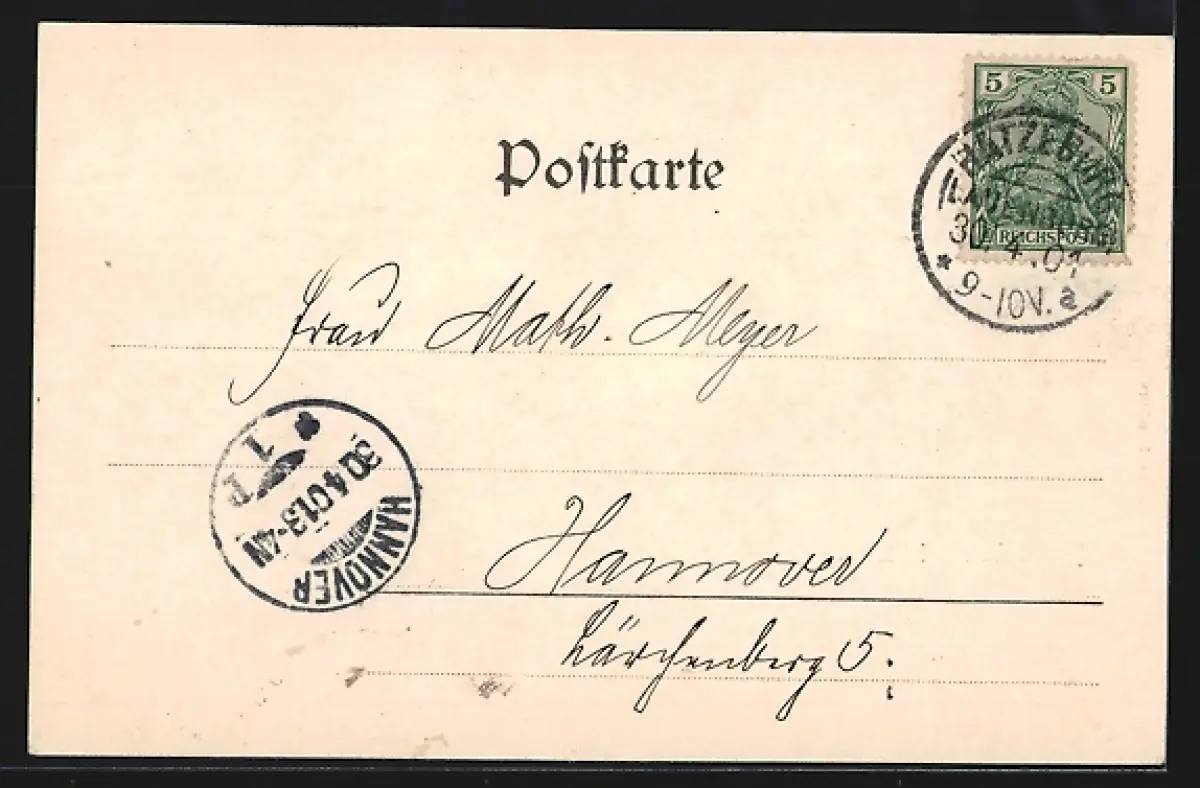 5 5
REICHSPOST
RATZEBURG
(LAUENBURG)
30.4.01
* 9-10V. a
Postkarte
Frau Math. Meyer
HANNOVER
30.4.01.3-4N
1 P
Hannover
Lärchenberg 5.